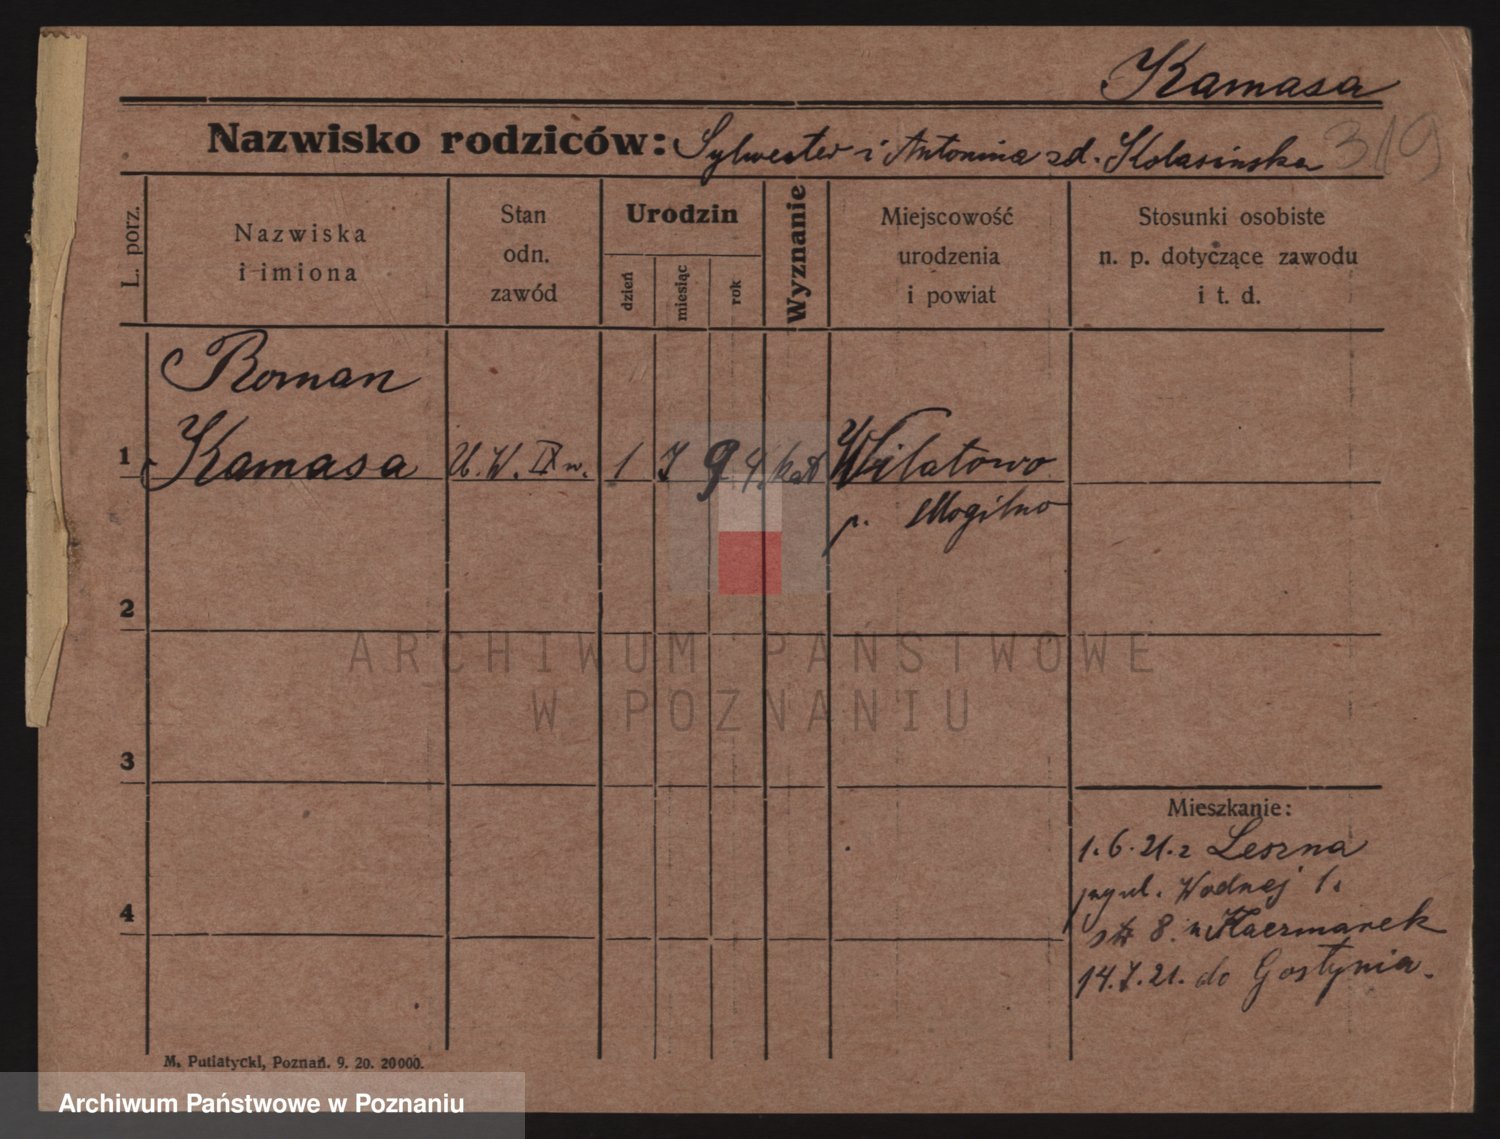 Kamasa
Nazwisko rodziców: Sylwester i Antonina zd. Kolasińska 319
L. porz.
Nazwiska
i imiona
Stan
odn.
zawód
Urodzin
dzień
miesiąc
rok
Wyznanie
Miejscowość
urodzenia
i powiat
Stosunki osobiste
n. p. dotyczące zawodu
i t. d.
Roman
1 Kamasa U. W. IX w. 1 7 94. kat Wilatowo
p. Mogilno
2
3
4
Mieszkanie:
1.6.21. z Leszna
Wodnej 1.
8. Kaczmarek
14.7.21. do Gostynia.
M. Putiatycki, Poznań. 9. 20. 20000.
ARCHIWUM PAŃSTWOWE
W POZNANIU
Archiwum Państwowe w Poznaniu